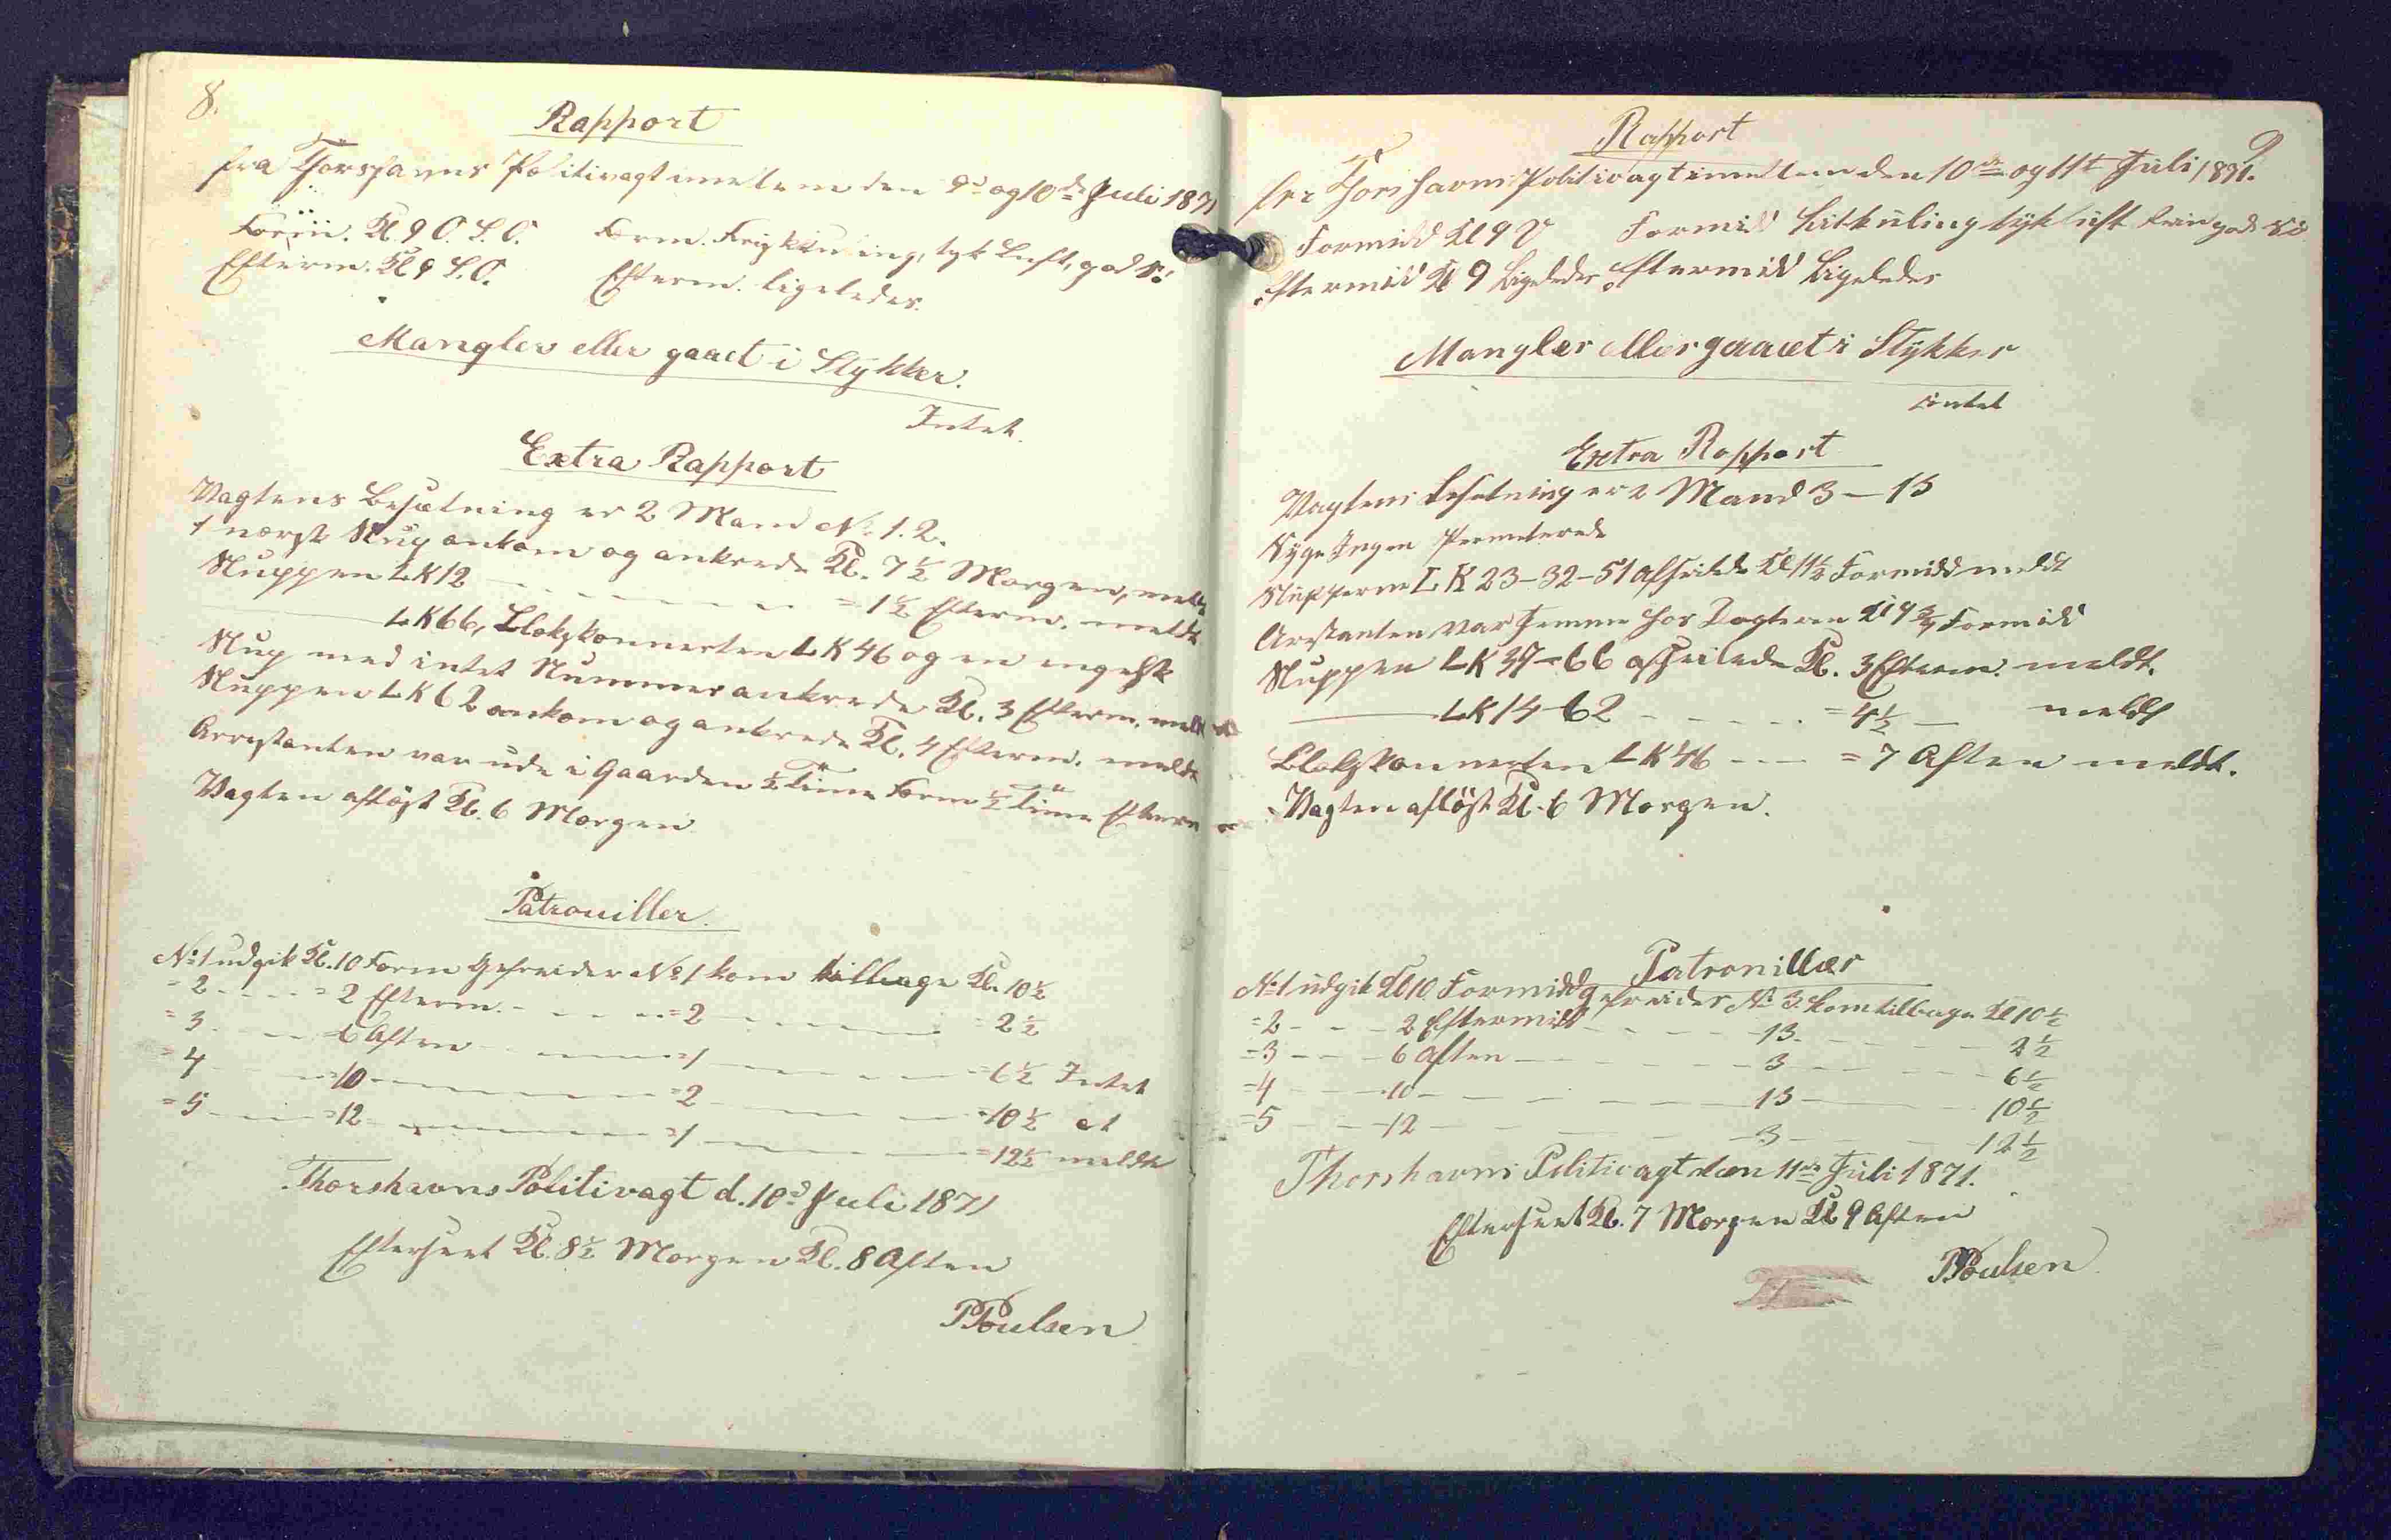 8.
Rapport
fra Thorshavns Politivagt imellem den 9d og 10de Juli 1871
Form. Kl. 9 O.S.O. Form. Frisk Kuling, tyk Luft, god
Efterm. Kl 9 S.O. Efterm. ligeledes.
Mangler eller gaaet i Stykker.
Intet.
Extra Rapport
Vagtens Besætning er 2 Mand No. 1. 2.
1 norsk Slup ankom og ankrede Kl. 7½ Morgen, meldt
Sluppen LK12 - - - - - - = 1½ Efterm. meldt
——— LK66, Slokskonnerten LK46 og en engelsk
Slup med intet Nummer ankrede Kl. 3 Efterm. meldt
Sluppen LK62 ankom og ankrede Kl. 4 Efterm. meldt
Arrestanten var ude i Gaarden ½ Time Form ½ Time Efterm
Vagten afløst Kl. 6 Morgen
Patrouiller.
No 1 udgik Kl. 10 Form Gefreider No 1 kom tilbage Kl. 10½
= 2 - - - - = 2 Efterm. - - - - = 2 - - - - = 2½
= 3 - - - - 6 Aften - - - - = 1 - - - - = 6½ Intet
= 4 - - = 10 - - - - = 2 - - - - = 10½ at
= 5 - - - = 12 - - - - = 1 - - - - = 12½ melde
Thorshavns Politivagt d. 10d Juli 1871
Efterseet Kl. 8½ Morgen Kl. 8 Aften
PPoulsen
9
Rapport
fra Thorshavns Politivagt imellem den 10de og 11t Juli 1871.
Formidd Kl 9 V Formidd Kuling tyk Luft
Eftermidd Kl 9 Ligeledes Eftermidd Ligeledes
Mangler Eller gaaet i Stykker
intet
Extra Rapport
Vagtens Besetning er 2 Mand 3 — 13
Syge Ingen Permiterede
Slupperne LK 23 - 32 - 51 afseilede Kl 11½ Formidd meldt
Arestanten var hemme hos Dogteren Kl 9¾ Formidd
Sluppen LK 37 - 66 afseilede Kl. 3 Efterm. meldt.
——— LK 14 - 62 - - - - = 4½ — meldt
Slokskonnerten LK46 - - - = 7 Aften meldt.
Vagten afløst Kl. 6 Morgen.
Patrouiller
No 1 udgik Kl 10 Formidd gefreider No 3. kom tilbage Kl 10½
= 2 - - - 2 Eftermidd - - - - 13 - - - - 2½
= 3 - - - 6 Aften - - - - 3 - - - - 6½
= 4 - - - 10 - - - - 13 - - - - 10½
= 5 - - - 12 - - - - 3 - - - - 12½
Thorshavns Politivagt den 11te Juli 1871.
Efterseet Kl. 7 Morgen Kl 9 Aften
PPoulsen